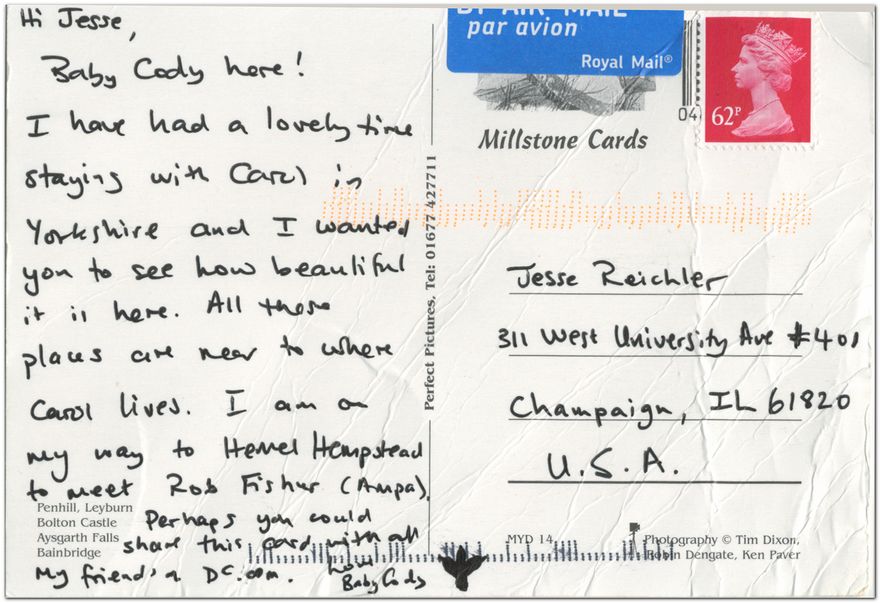 Hi Jesse,
Baby Cody here!
I have had a lovely time
staying with Carol in
Yorkshire and I wanted
you to see how beautiful
it is here. All these
places are near to where
Carol lives. I am on
my way to Hemel Hempstead
to meet Rob Fisher (Ampa).
Perhaps you could
share this card with all
my friends on DC.com. love
Baby Cody
Penhill, Leyburn
Bolton Castle
Aysgarth Falls
Bainbridge
Perfect Pictures, Tel: 01677 427711
BY AIR MAIL
par avion
Royal Mail®
04
62P
Millstone Cards
Jesse Reichler
311 West University Ave #401
Champaign, IL 61820
U.S.A.
MYD 14
Photography © Tim Dixon,
Robin Dengate, Ken Paver